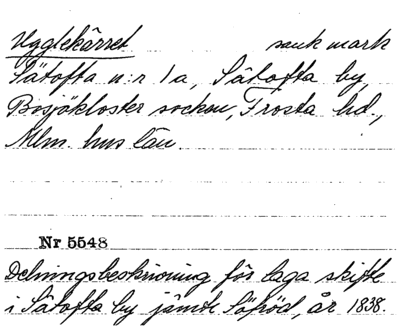 Ugglekärret sank mark
Sätofta n:r 1a, Sätofta by,
Bosjökloster socken, Frosta hd.,
Mlm. hus län
Nr 5548
Delningsbeskrivning för laga skifte
i Sätofta by jämte Säfröd, år 1838.